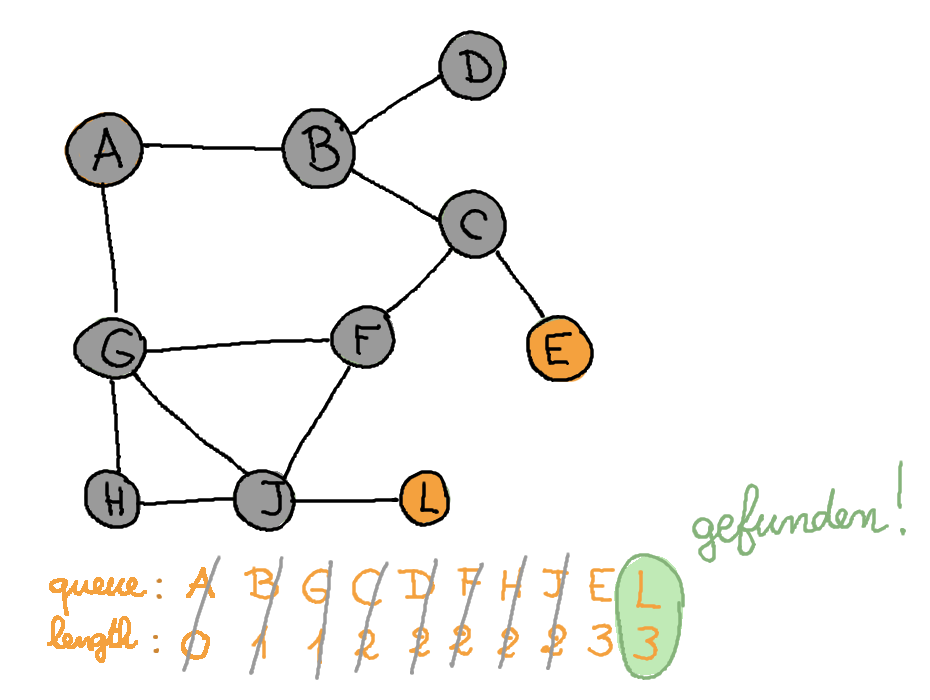 D
A B
C
G F E
H J L
gefunden!
queue: A B G C D F H J E L
length: 0 1 1 2 2 2 2 2 3 3